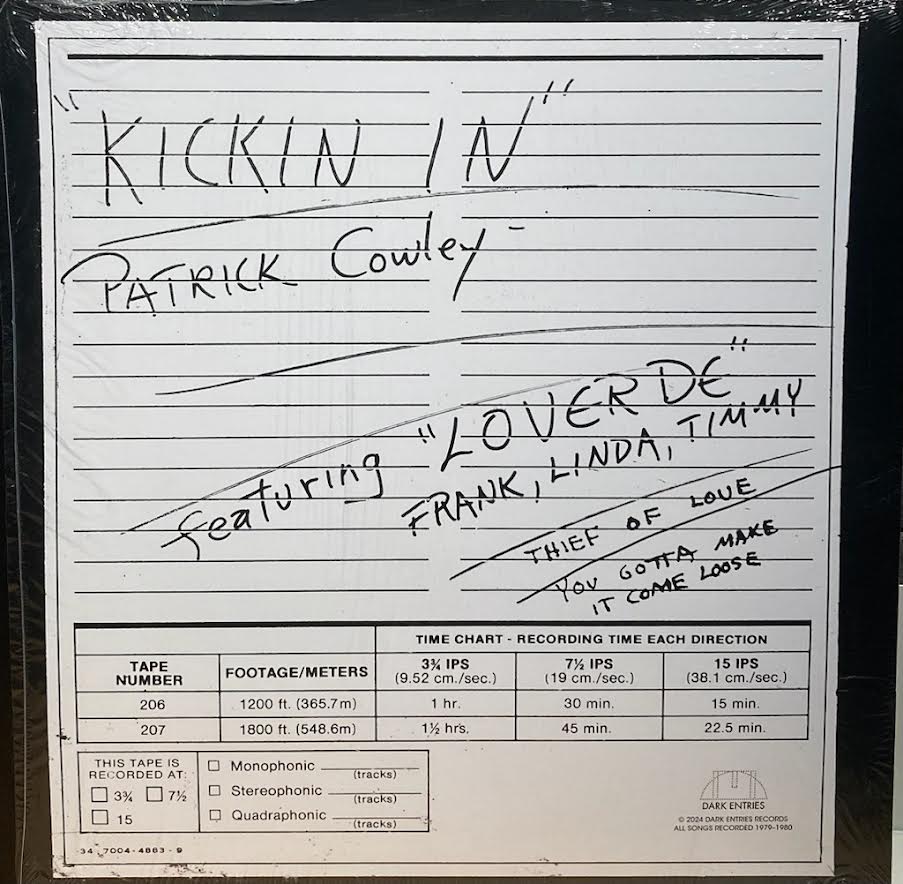 "KICKIN IN"
PATRICK Cowley -
featuring "LOVERDE"
FRANK, LINDA, TIMMY
THIEF OF LOVE
YOU GOTTA MAKE
IT COME LOOSE
TIME CHART - RECORDING TIME EACH DIRECTION
TAPE NUMBER FOOTAGE/METERS 3¾ IPS (9.52 cm./sec.) 7½ IPS (19 cm./sec.) 15 IPS (38.1 cm./sec.)
206 1200 ft. (365.7m) 1 hr. 30 min. 15 min.
207 1800 ft. (548.6m) 1½ hrs. 45 min. 22.5 min.
THIS TAPE IS
RECORDED AT:
☐ 3¾ ☐ 7½
☐ 15
☐ Monophonic ________ (tracks)
☐ Stereophonic ________ (tracks)
☐ Quadraphonic ________ (tracks)
34-7004-4883-9
DARK ENTRIES
© 2024 DARK ENTRIES RECORDS
ALL SONGS RECORDED 1979-1980